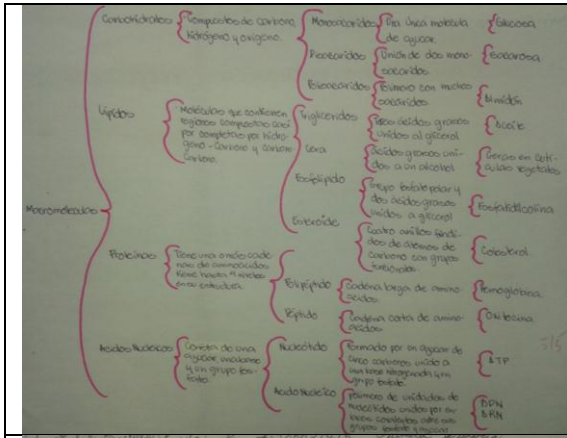 Carbohidratos
Compuestos de carbono,
hidrógeno y oxígeno.
Monosacáridos
Una única molécula
de azúcar.
Glucosa
Disacáridos
Unión de dos mono-
sacáridos.
Sacarosa
Polisacáridos
Polímero con muchos
sacáridos.
Almidón
Lípidos
Moléculas que contienen
regiones compuestas casi
por completo por hidró-
geno - Carbono y carbono-
Carbono.
Triglicéridos
Tres ácidos grasos
unidos al glicerol
Aceite
Cera
Ácidos grasos uni-
dos a un alcohol
Ceras en cutí-
culas vegetales
Fosfolípido
Grupo fosfato polar y
dos ácidos grasos
unidos a glicerol
Fosfatidilcolina
Esteroide
Cuatro anillos fundi-
dos de átomos de
carbono con grupos
funcionales.
Colesterol
Macromoléculas
Proteínas
Tiene una o más cade-
nas de aminoácidos
tiene hasta 4 niveles
en su estructura.
Polipéptido
Cadena larga de amino-
ácidos.
Hemoglobina
Péptido
Cadena corta de amino-
ácidos.
Oxitocina
5/5
Ácidos Nucleicos
Consta de una
azúcar, una base
y un grupo fos-
fato.
Nucleótido
Formado por un azúcar de
cinco carbonos unido a
una base nitrogenada y un
grupo fosfato.
ATP
Ácido Nucleico
Polímero de unidades de
nucleótidos unidos por en-
laces covalentes entre sus
grupos fosfato y azúcar.
ADN
ARN